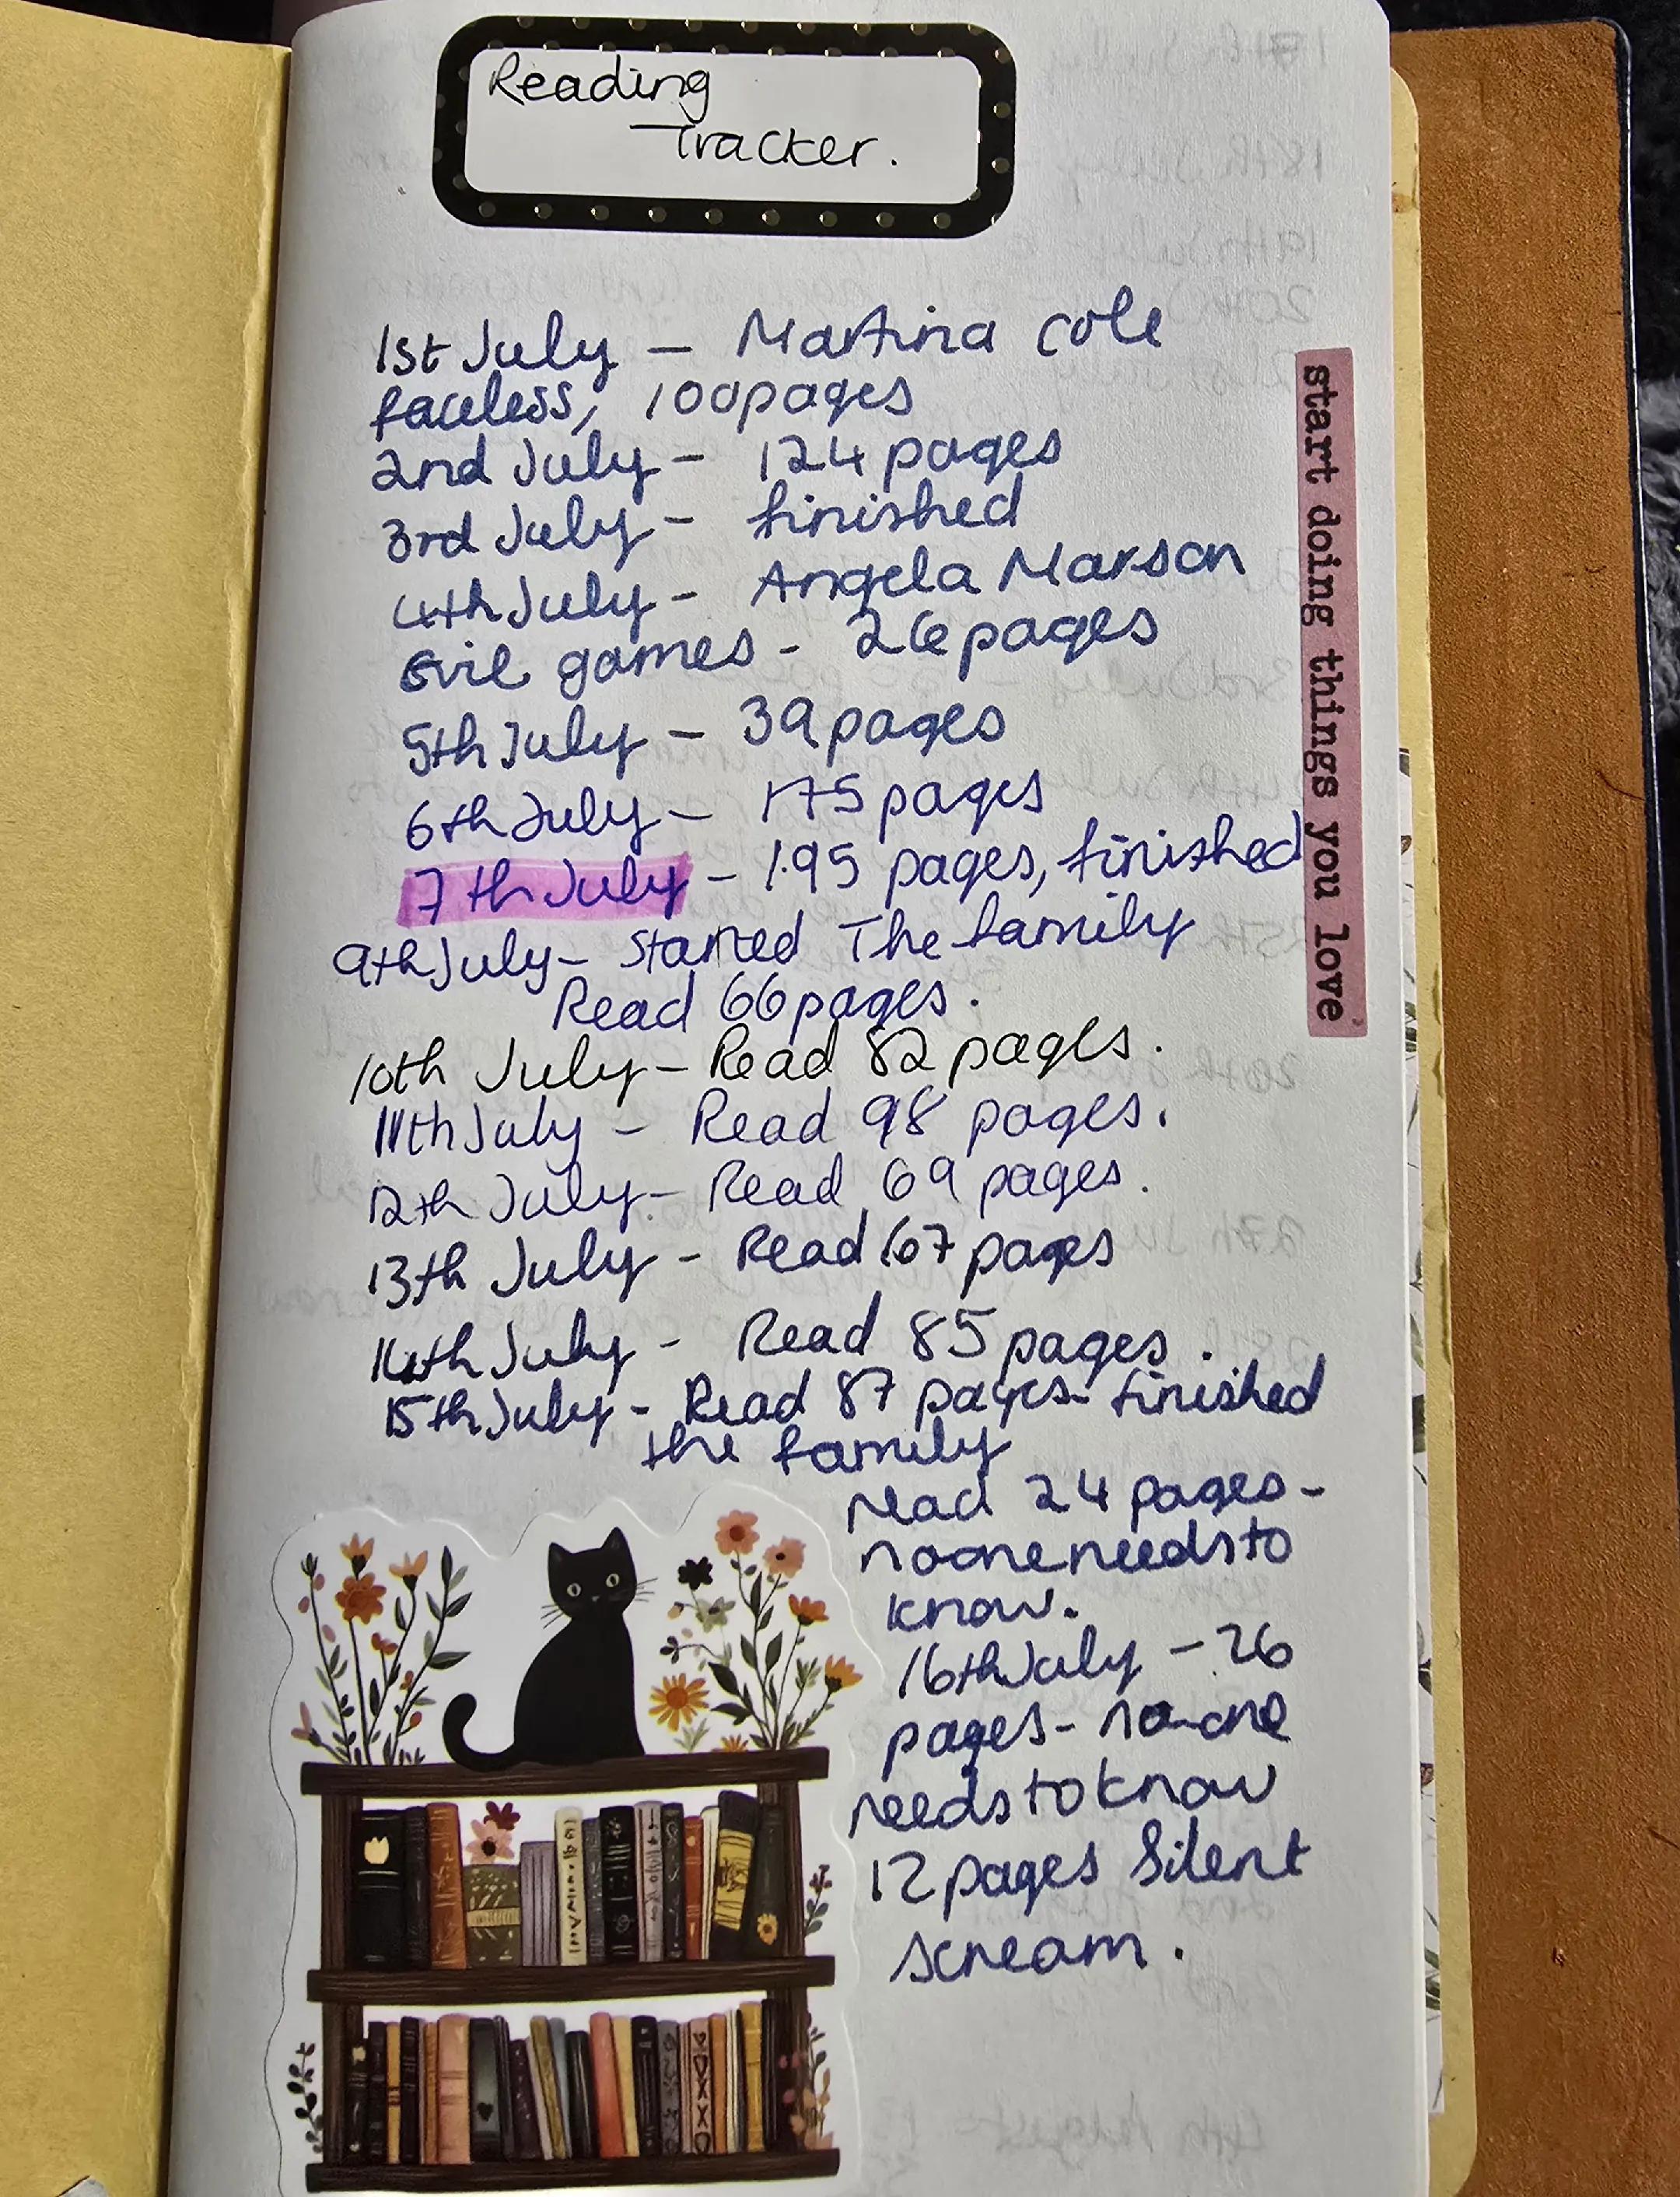 Reading
Tracker.
1st July – Martina cole
faceless, 100pages
2nd July – 124 pages
3rd July – finished
4th July – Angela Marson
Evil games – 26pages
5th July – 39pages
6th July – 175pages
7th July – 195 pages, finished
9th July – Started The family
Read 66pages.
10th July – Read 82 pages.
11th July – Read 98 pages.
12th July – Read 69 pages.
13th July – Read 67 pages
14th July – Read 85 pages.
15th July – Read 87 pages – finished
the family
read 24 pages –
noone needs to
know.
16th July – 26
pages – no-one
needs to know
12 pages Silent
scream.
start doing things you love